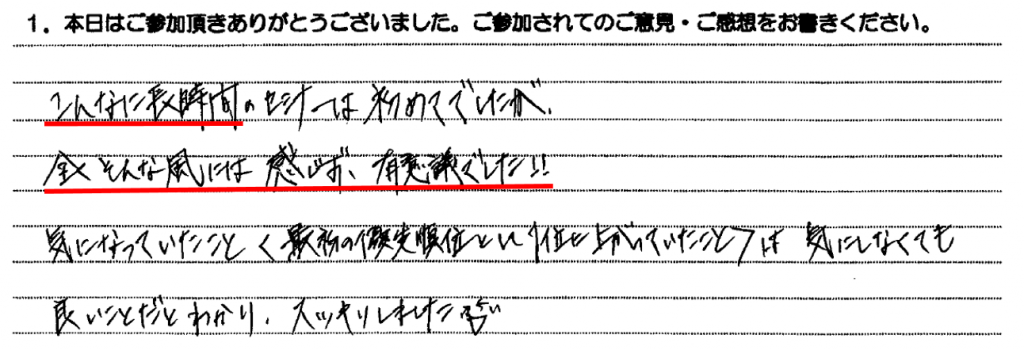 1．本日はご参加頂きありがとうございました。ご参加されてのご意見・ご感想をお書きください。
こんなに長時間のセミナーは初めてでしたが、
全くそんな風には感じず、有意議でした!!
気になっていたこと＜最初の優先順位という1位に上がっていたこと＞は 気にしなくても
良いことだとわかり、スッキリしました